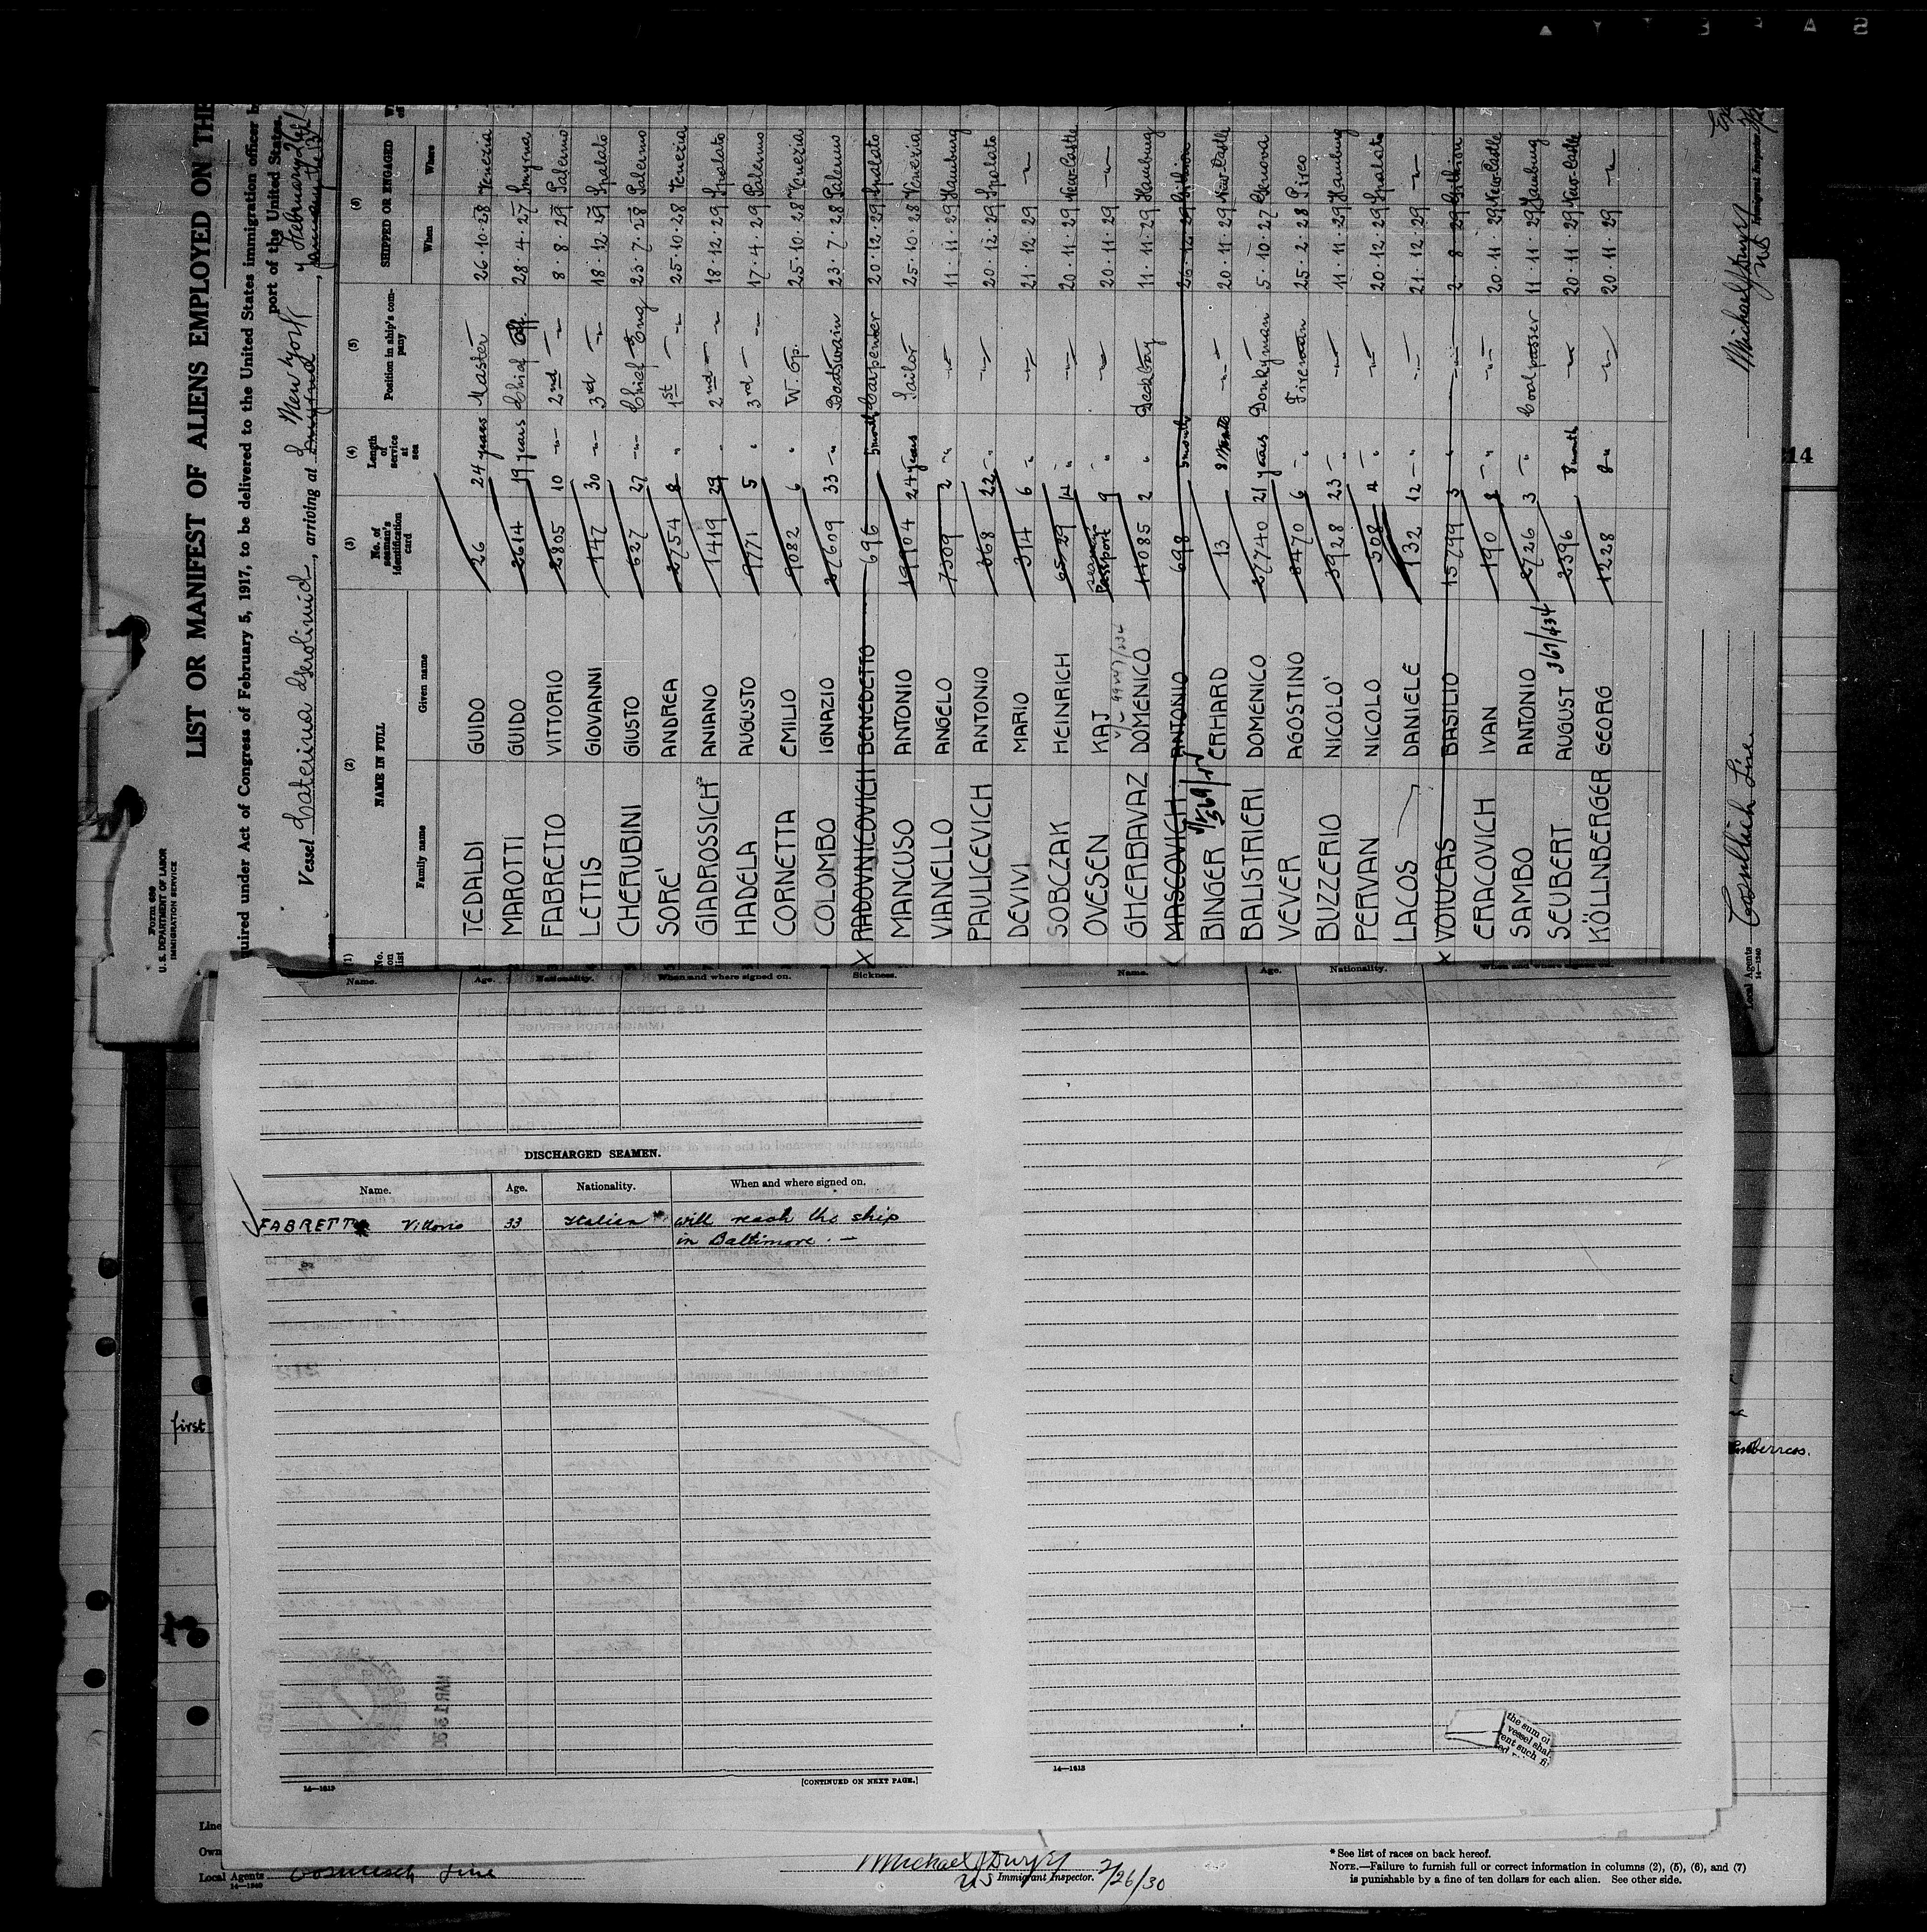 SAFETY
Form 689
U. S. DEPARTMENT OF LABOR
IMMIGRATION SERVICE
LIST OR MANIFEST OF ALIENS EMPLOYED ON THE
uired under Act of Congress of February 5, 1917, to be delivered to the United States immigration officer b
port of the United States.
Vessel Caterina Gerolimich, arriving at Smyrna New York, January the 13th February 26th
(1) (2) (3) (4) (5) (6)
No. on list NAME IN FULL No. of seaman's identification card Length of service at sea Position in ship's company SHIPPED OR ENGAGED
Family name Given name When Where
TEDALDI GUIDO 26 24 years Master 26.10.28 Venezia
MAROTTI GUIDO 2614 19 years Chief Off. 28.4.27 Smyrna
FABRETTO VITTORIO 2805 10 -"- 2nd -"- 8.8.29 Palermo
LETTIS GIOVANNI 147 30 -"- 3rd -"- 18.12.29 Spalato
CHERUBINI GIUSTO 627 27 -"- Chief Eng 23.7.28 Palermo
SORE' ANDREA 2754 8 " 1st -"- 25.10.28 Venezia
GIADROSSICH ANIANO 1419 29 " 2nd -"- 18.12.29 Spalato
HADELA AUGUSTO 9771 5 " 3rd -"- 17.4.29 Palermo
CORNETTA EMILIO 9082 6 " W. Op. 25.10.28 Venezia
COLOMBO IGNAZIO 27609 33 -"- Boatswain 23.7.28 Palermo
X RADOVNICOVICH BENEDETTO 696 5 months Carpenter 20.12.29 Spalato
MANCUSO ANTONIO 19904 24 years Sailor 25.10.28 Venezia
VIANELLO ANGELO 7309 2 -"- -"- 11.11.29 Hamburg
PAULICEVICH ANTONIO 368 22 -"- -"- 20.12.29 Spalato
DEVIVI MARIO 314 6 " -"- 21.12.29 -"-
SOBCZAK HEINRICH 6529 14 " -"- 20.11.29 New-Castle
OVESEN KAJ Passport 9 -"- -"- 20.11.29 -"-
GHERBAVAZ DOMENICO 14085 2 " Deckboy 11.11.29 Hamburg
X MASCOVICH ANTONIO 698 5 months 26.12.29 Githion
BINGER ERHARD 13 8 month -"- 20.11.29 New-Castle
BALISTRIERI DOMENICO 27740 21 years Donkyman 5.10.27 Genova
VEVER AGOSTINO 8470 6 -"- Fireman 25.2.28 Pireo
BUZZERIO NICOLO' 3928 23 -"- -"- 11.11.29 Hamburg
PERVAN NICOLO 508 4 -"- -"- 20.12.29 Spalato
LACOS DANIELE 132 12 -"- -"- 21.12.29 -"-
X VOIUCAS BASILIO 15799 3 " -"- 2.8.29 Githion
ERACOVICH IVAN 190 2 -"- -"- 20.11.29 New-Castle
SAMBO ANTONIO 2726 3 -"- Coalpasser 11.11.29 Hamburg
SEUBERT AUGUST 367/434 2396 8 month -"- 20.11.29 New-Castle
KÖLLNBERGER GEORG 1228 8 " -"- 20.11.29 -"-
Local Agents Cosulich Line
14—1240
Michael J Dwyer
US Immigrant Inspector
14
Name. Age. Nationality. When and where signed on. Sickness.
DISCHARGED SEAMEN.
Name. Age. Nationality. When and where signed on.
FABRETTO Vittorio 33 Italian will reach the ship
in Baltimore. —
MAR 13 30
14—1813 [CONTINUED ON NEXT PAGE.]
Name. Age. Nationality. When and where signed on.
the sum of
vessel shal
ent such fi
14—1813
first
Line
Own
Local Agents Cosulich Line
14—1240
Michael J Dwyer
US Immigrant Inspector. 2/26/30
* See list of races on back hereof.
NOTE.—Failure to furnish full or correct information in columns (2), (5), (6), and (7)
is punishable by a fine of ten dollars for each alien. See other side.